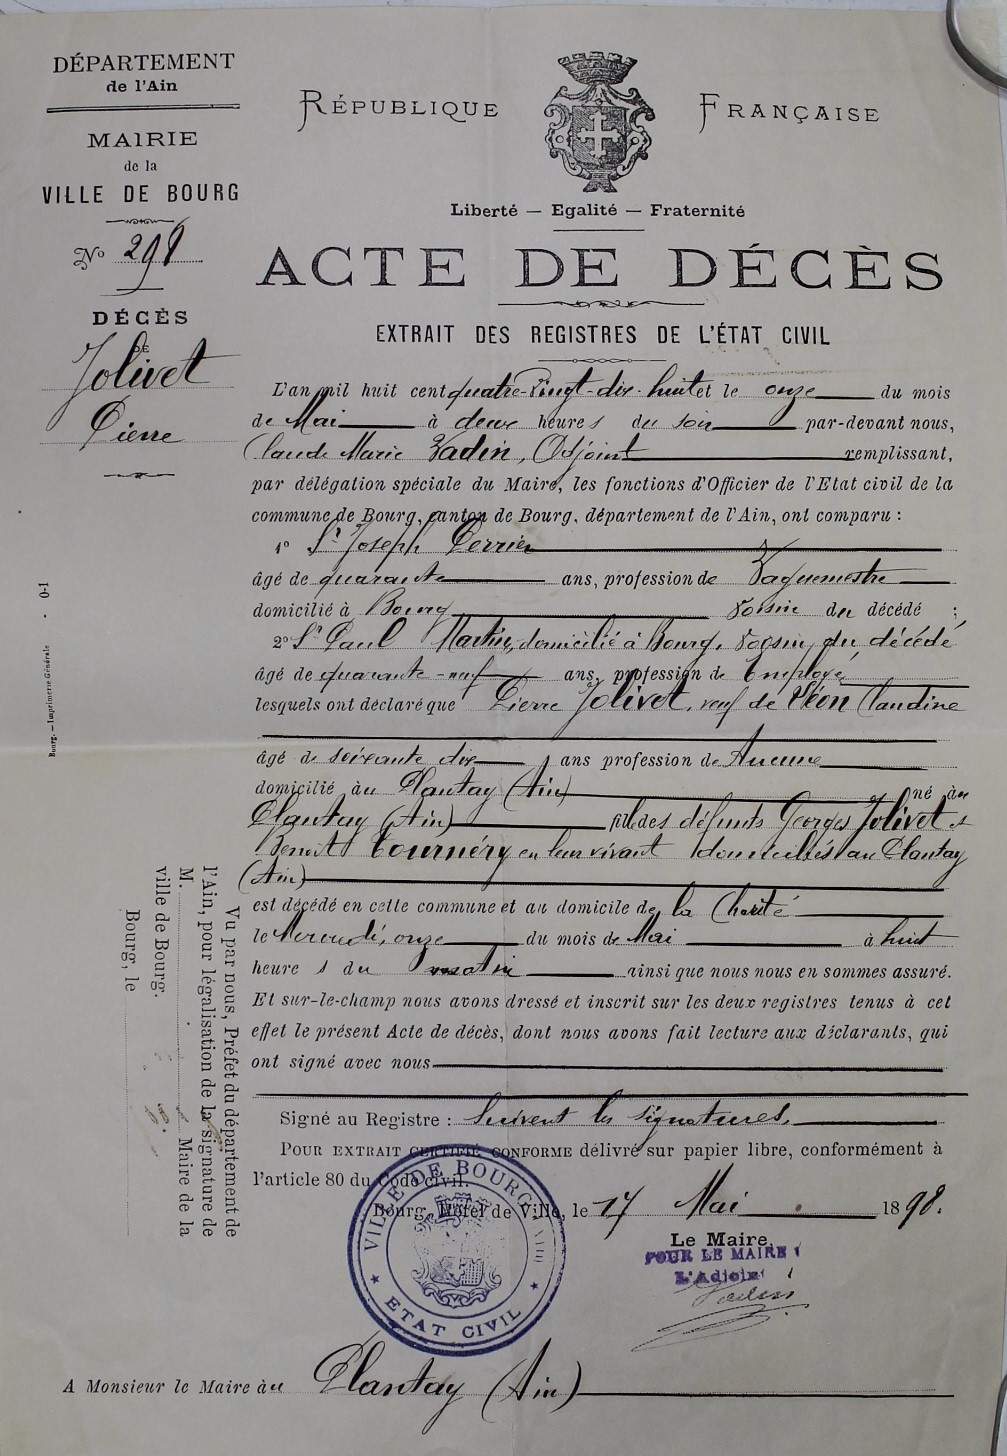 DÉPARTEMENT
de l'Ain
MAIRIE
de la
VILLE DE BOURG
No 298
DÉCÈS
DE
Jolivet
Pierre
RÉPUBLIQUE FRANÇAISE
Liberté — Egalité — Fraternité
ACTE DE DÉCÈS
EXTRAIT DES REGISTRES DE L'ÉTAT CIVIL
L'an mil huit cent quatre-vingt-dix-huit et le onze du mois
de Mai à deux heures du soir par-devant nous,
Claude Marie Vadin, Adjoint remplissant,
par délégation spéciale du Maire, les fonctions d'Officier de l'Etat civil de la
commune de Bourg, canton de Bourg, département de l'Ain, ont comparu :
1o Sr Joseph Perrier
âgé de quarante ans, profession de Vaguemestre
domicilié à Bourg voisin du décédé ;
2o Sr Paul Martin, domicilié à Bourg, voisin du décédé
âgé de quarante-neuf ans, profession de Employé
lesquels ont déclaré que Pierre Jolivet, veuf de Claudine
âgé de soixante dix ans profession de Aucune
domicilié au Plantay (Ain) né au
Plantay (Ain) fils des défunts Georges Jolivet et
Benoit Tournéry en leur vivant domiciliés au Plantay
(Ain)
est décédé en cette commune et au domicile de la Charité
le Mercredi, onze du mois de Mai à huit
heures du matin ainsi que nous nous en sommes assuré.
Et sur-le-champ nous avons dressé et inscrit sur les deux registres tenus à cet
effet le présent Acte de décès, dont nous avons fait lecture aux déclarants, qui
ont signé avec nous
Signé au Registre : Suivent les signatures.
POUR EXTRAIT CERTIFIÉ CONFORME délivré sur papier libre, conformément à
l'article 80 du Code civil.
Bourg, Hôtel de Ville, le 17 Mai 1898.
Le Maire,
POUR LE MAIRE
L'Adjoint
Vadin
VILLE DE BOURG (AIN)
★ ETAT CIVIL ★
A Monsieur le Maire au Plantay (Ain)
Bourg. — Imprimerie Générale · 0-1
Vu par nous, Préfet du département de
l'Ain, pour légalisation de la signature de
M. Maire de la
ville de Bourg.
Bourg, le